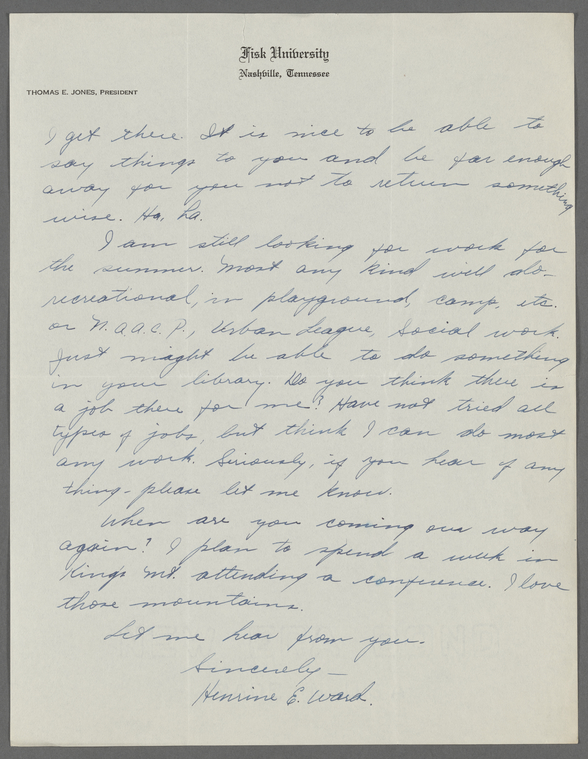 Fisk University
Nashville, Tennessee
THOMAS E. JONES, PRESIDENT
I get there. It is nice to be able to
say things to you and be far enough
away for you not to return something
wise. Ha, ha.
I am still looking for work for
the summer. Most any kind will do-
recreational, in playground, camp, etc.
or N.A.A.C.P., Urban League, Social work.
Just might be able to do something
in your library. Do you think there is
a job there for me? Have not tried all
types of jobs, but think I can do most
any work. Seriously, if you hear of any
thing - please let me know.
When are you coming our way
again? I plan to spend a week in
King's Mt. attending a conference. I love
those mountains.
Let me hear from you.
Sincerely -
Henrine E. Ward.